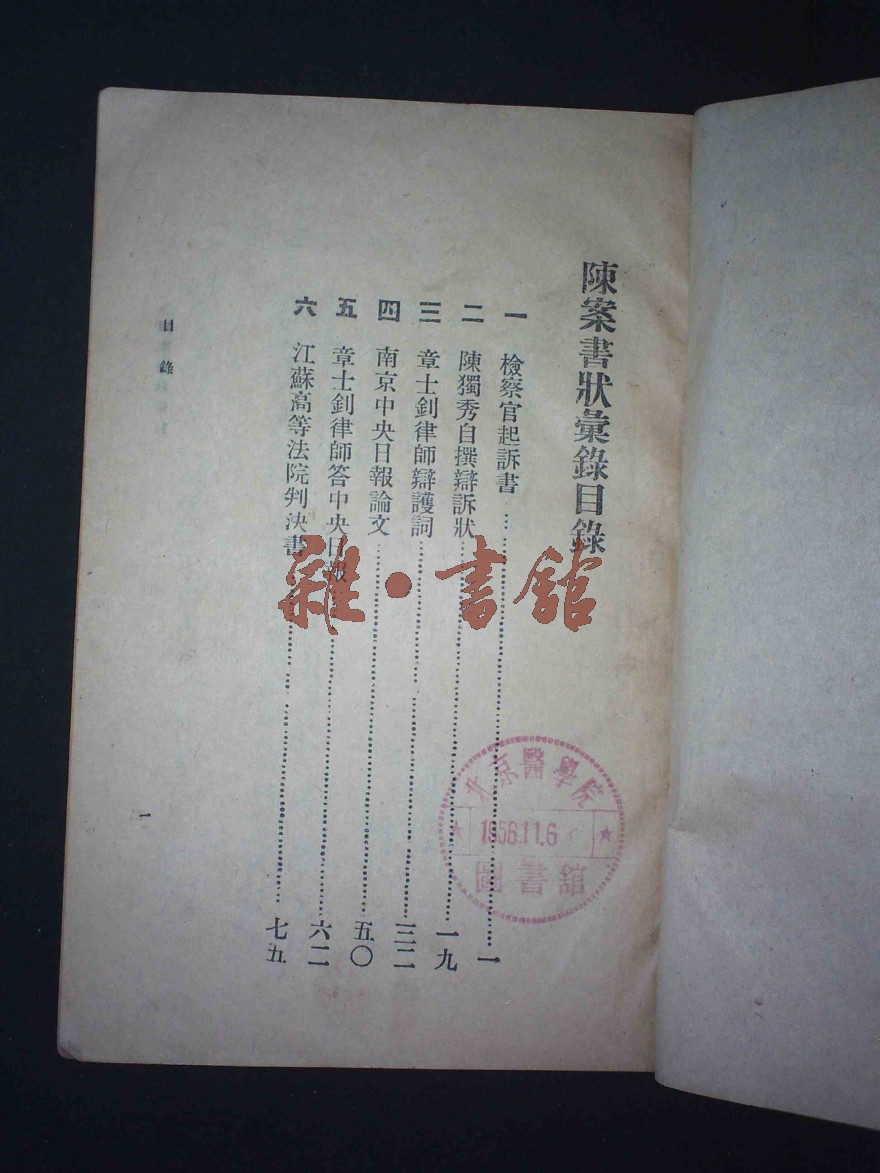 陳案書狀彙錄目錄
一 檢察官起訴書……一
二 陳獨秀自撰辯訴狀……一九
三 章士釗律師辯護詞……三二
四 南京中央日報論文……五〇
五 章士釗律師答中央日報……六二
六 江蘇高等法院判決書……七五
目錄
一
雜·書館
北京醫學院
1956.11.6
圖書館